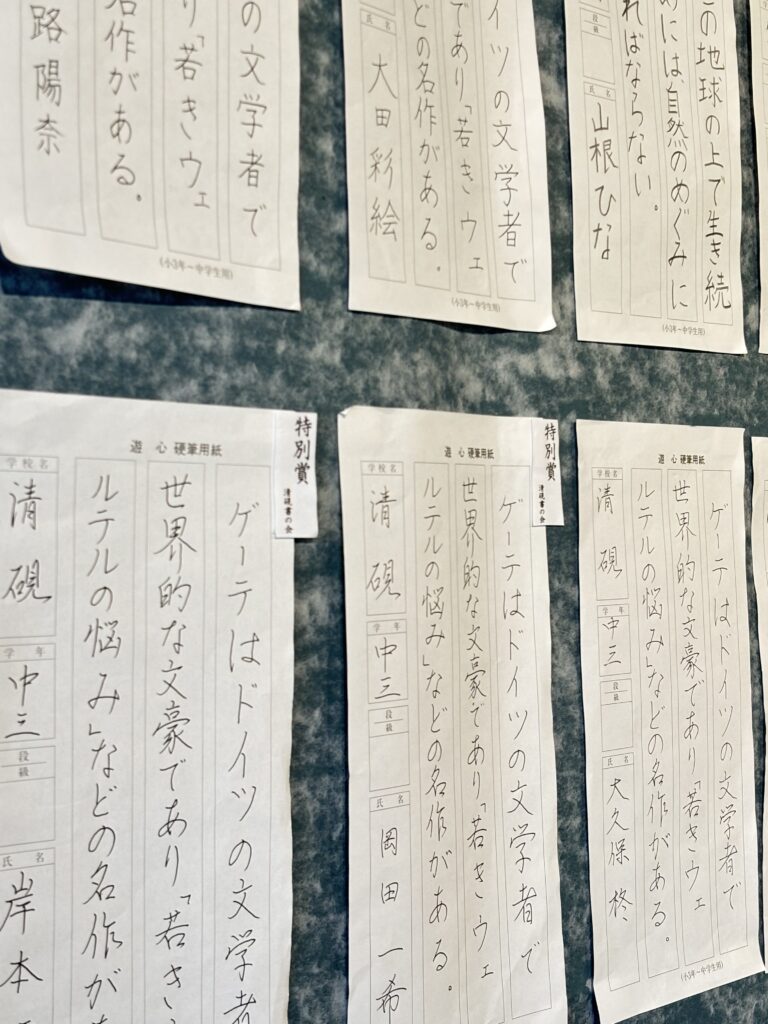 の文学者で
り「若きウェ
名作がある。
路陽奈
(小3年〜中学生用)
イツの文学者で
であり「若きウェ
どの名作がある。
氏名
大田彩絵
(小3年〜中学生用)
この地球の上で生き続
めには自然のめぐみに
ればならない。
段級
氏名
山根ひな
(小3年〜中学生用)
特別賞
清硯書の会
遊心硬筆用紙
ゲーテはドイツの文学者
世界的な文豪であり「若きウ
ルテルの悩み」などの名作が
学校名
清硯
学年
中三
段級
氏名
岸本
特別賞
清硯書の会
遊心硬筆用紙
ゲーテはドイツの文学者で
世界的な文豪であり「若きウェ
ルテルの悩み」などの名作がある。
学校名
清硯
学年
中三
段級
氏名
岡田一希
遊心硬筆用紙
ゲーテはドイツの文学者で
世界的な文豪であり「若きウェ
ルテルの悩み」などの名作がある。
学校名
清硯
学年
中三
段級
氏名
大久保柊
(小3年〜中学生用)